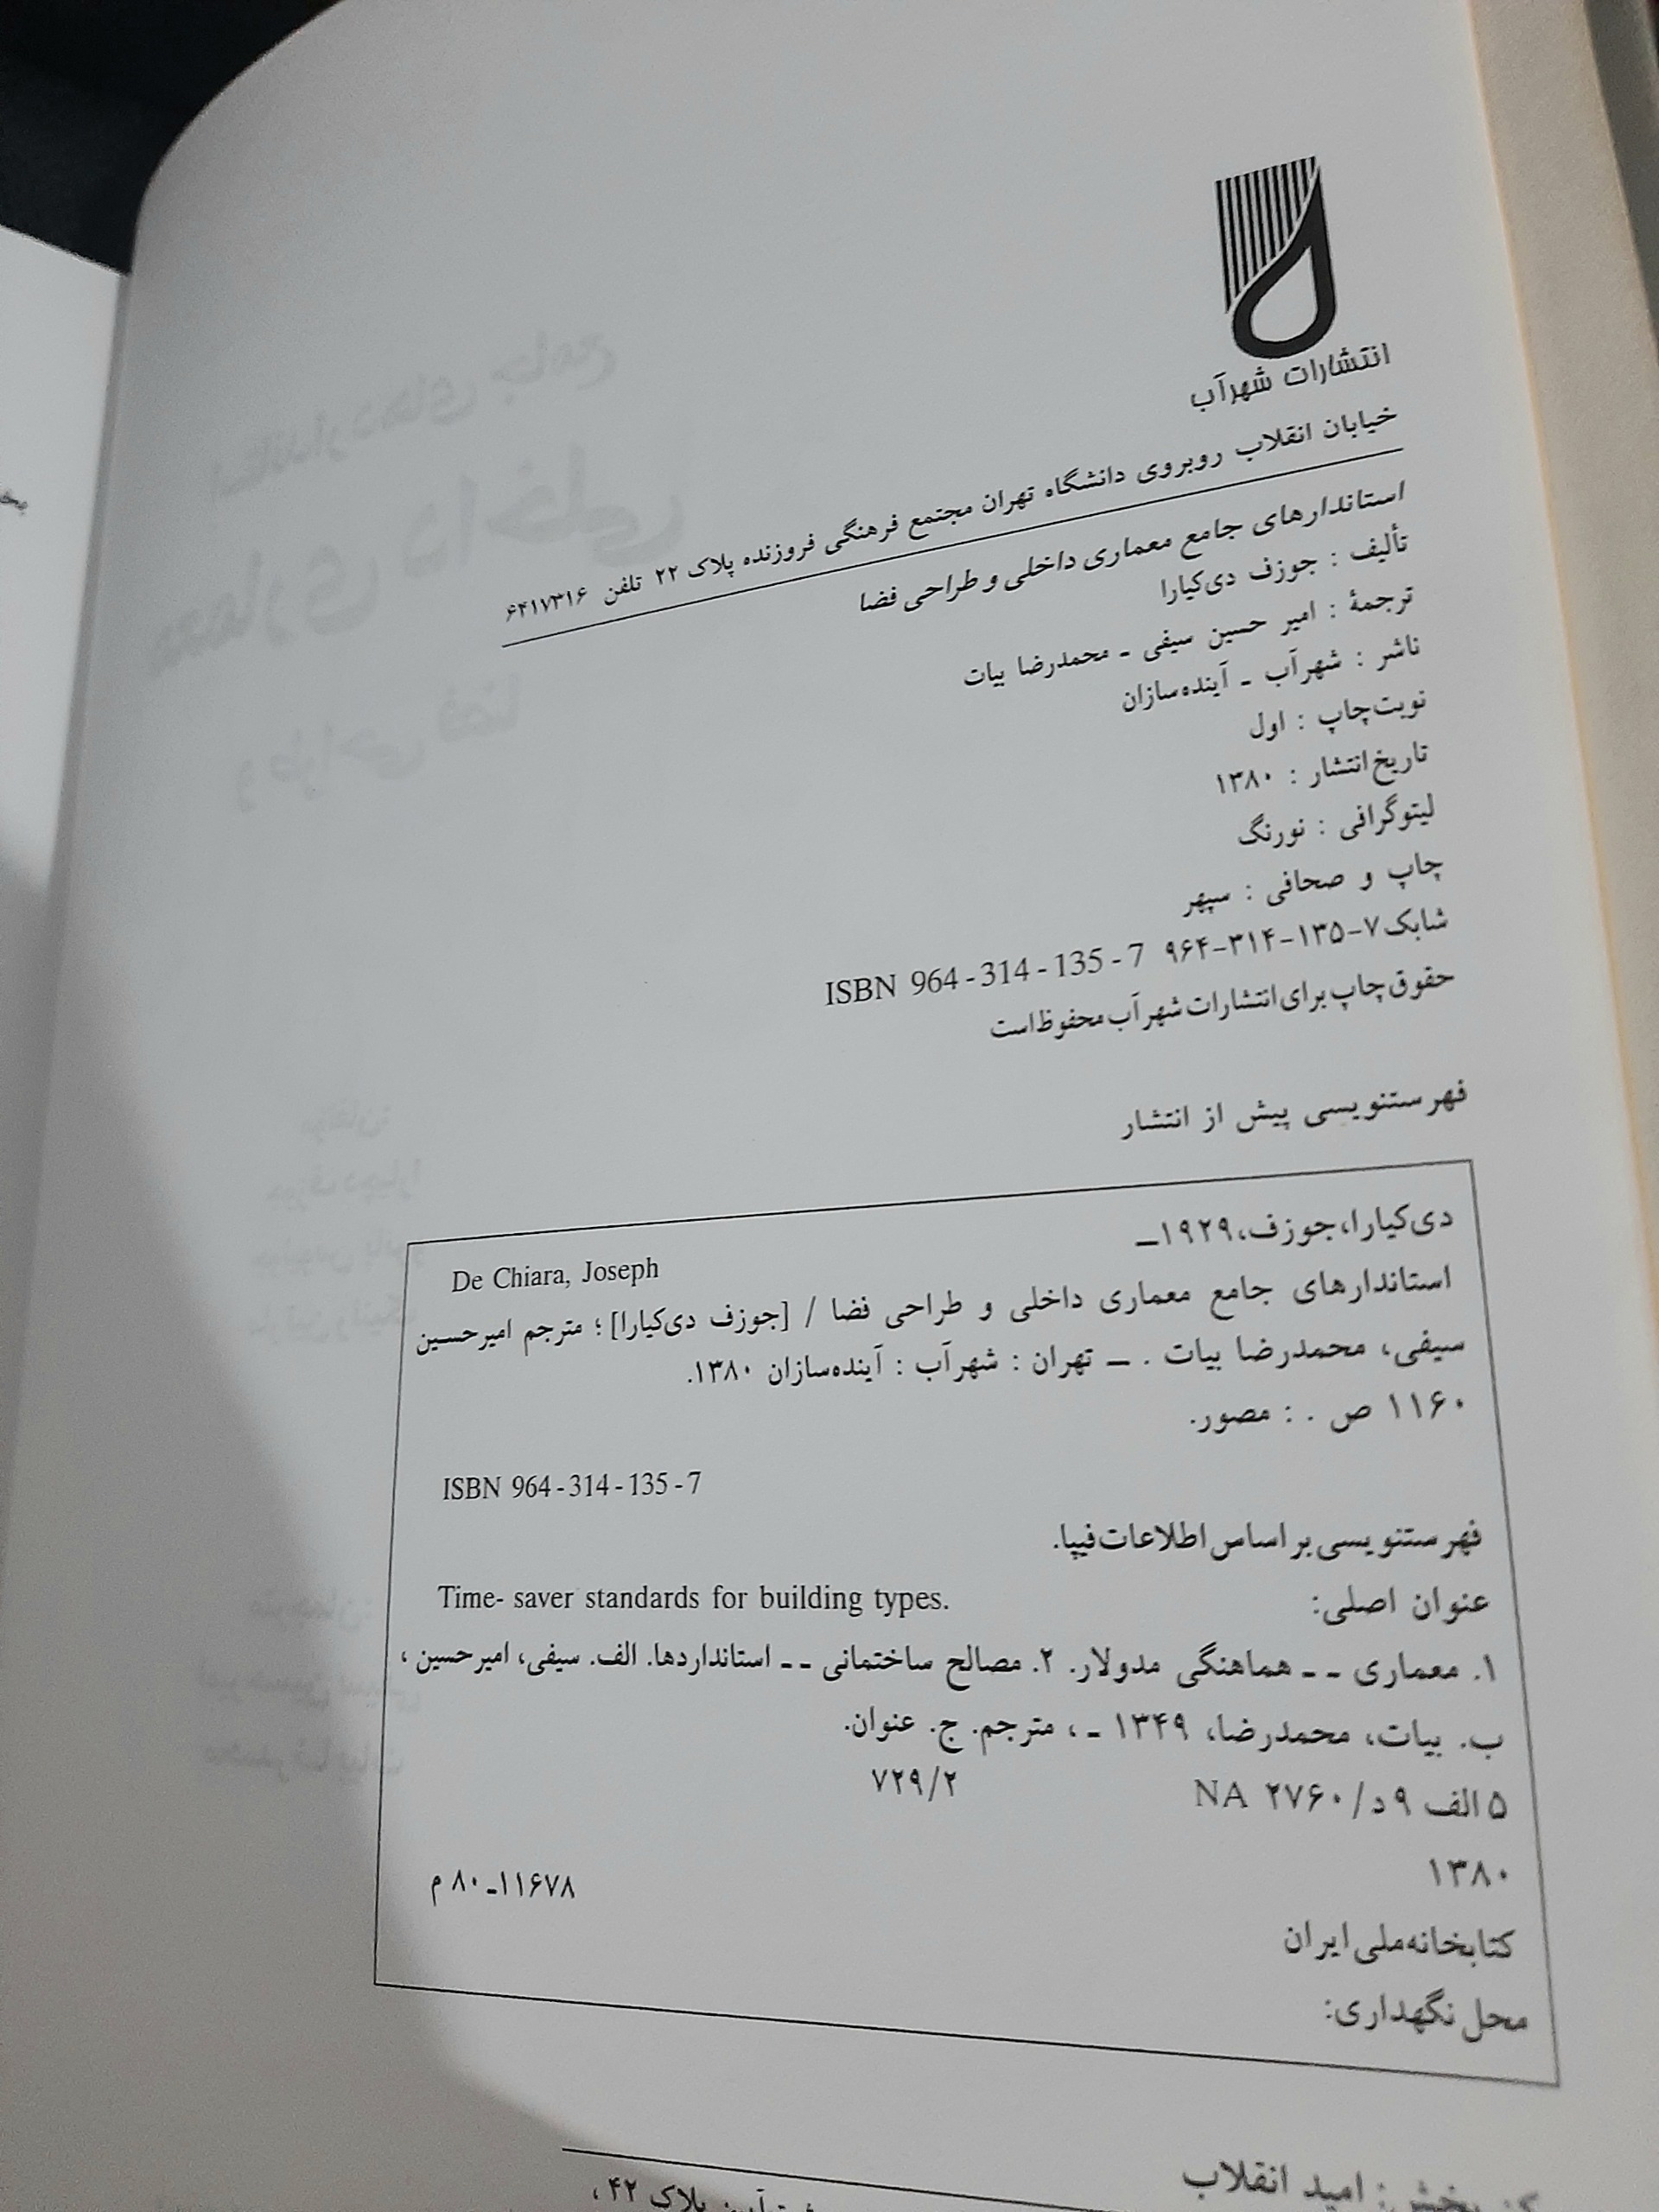 انتشارات شهرآب
خیابان انقلاب روبروی دانشگاه تهران مجتمع فرهنگی فروزنده پلاک ۲۲ تلفن ۶۴۱۷۳۱۶
استاندارهای جامع معماری داخلی و طراحی فضا
تألیف : جوزف دی‌کیارا
ترجمهٔ : امیر حسین سیفی ـ محمدرضا بیات
ناشر : شهرآب ـ آینده‌سازان
نوبت‌چاپ : اول
تاریخ‌انتشار : ۱۳۸۰
لیتوگرافی : نورنگ
چاپ و صحافی : سپهر
شابک ۷-۱۳۵-۳۱۴-۹۶۴ ISBN 964-314-135-7
حقوق چاپ برای انتشارات شهرآب محفوظ است
فهرستنویسی پیش از انتشار
دی‌کیارا، جوزف، ۱۹۲۹ـ
De Chiara, Joseph
استاندارهای جامع معماری داخلی و طراحی فضا / [جوزف دی‌کیارا] ؛ مترجم امیرحسین
سیفی، محمدرضا بیات . ـ تهران : شهرآب : آینده‌سازان ۱۳۸۰.
۱۱۶۰ ص . : مصور.
ISBN 964-314-135-7
فهرستنویسی بر اساس اطلاعات فیپا.
عنوان اصلی: Time- saver standards for building types.
۱. معماری ـ ـ هماهنگی مدولار. ۲. مصالح ساختمانی ـ ـ استانداردها. الف. سیفی، امیرحسین ،
ب. بیات، محمدرضا، ۱۳۴۹ ـ ، مترجم. ج. عنوان.
۵ الف ۹ د/ ۲۷۶۰ NA ۷۲۹/۲
۱۳۸۰
۱۱۶۷۸ـ۸۰ م
کتابخانه ملی ایران
محل نگهداری:
پخش : امید انقلاب
پلاک ۴۲ ،